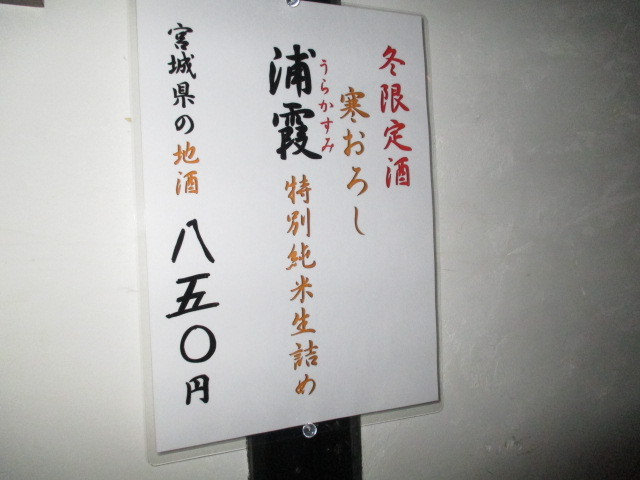 冬限定酒
寒おろし
うらかすみ
浦霞 特別純米生詰め
宮城県の地酒 八五〇円